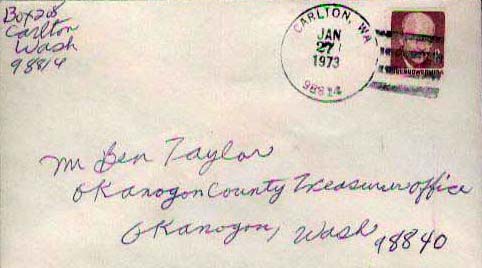 Box 208
Carlton
Wash
98814
CARLTON, WA
JAN
27
1973
98814
EISENHOWER USA
Mr Ben Taylor
Okanogon County Treasurer office
Okanogon, Wash 98840